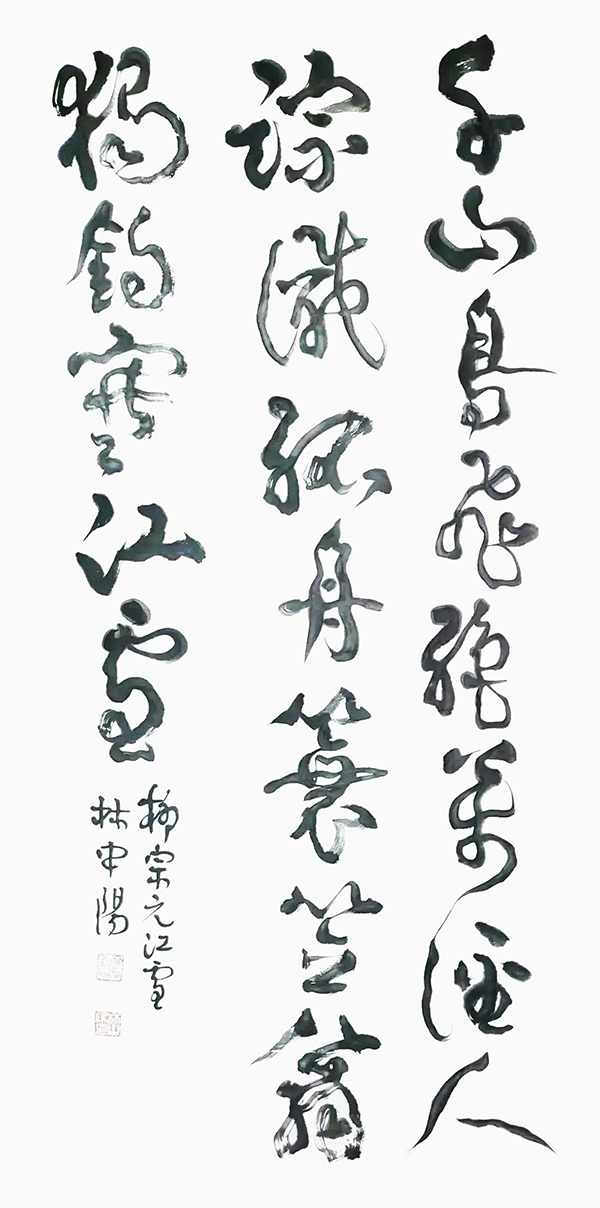 千山鳥飛絕萬徑人
踪滅孤舟簑笠翁
獨釣寒江雪
柳宗元江雪
林中陽